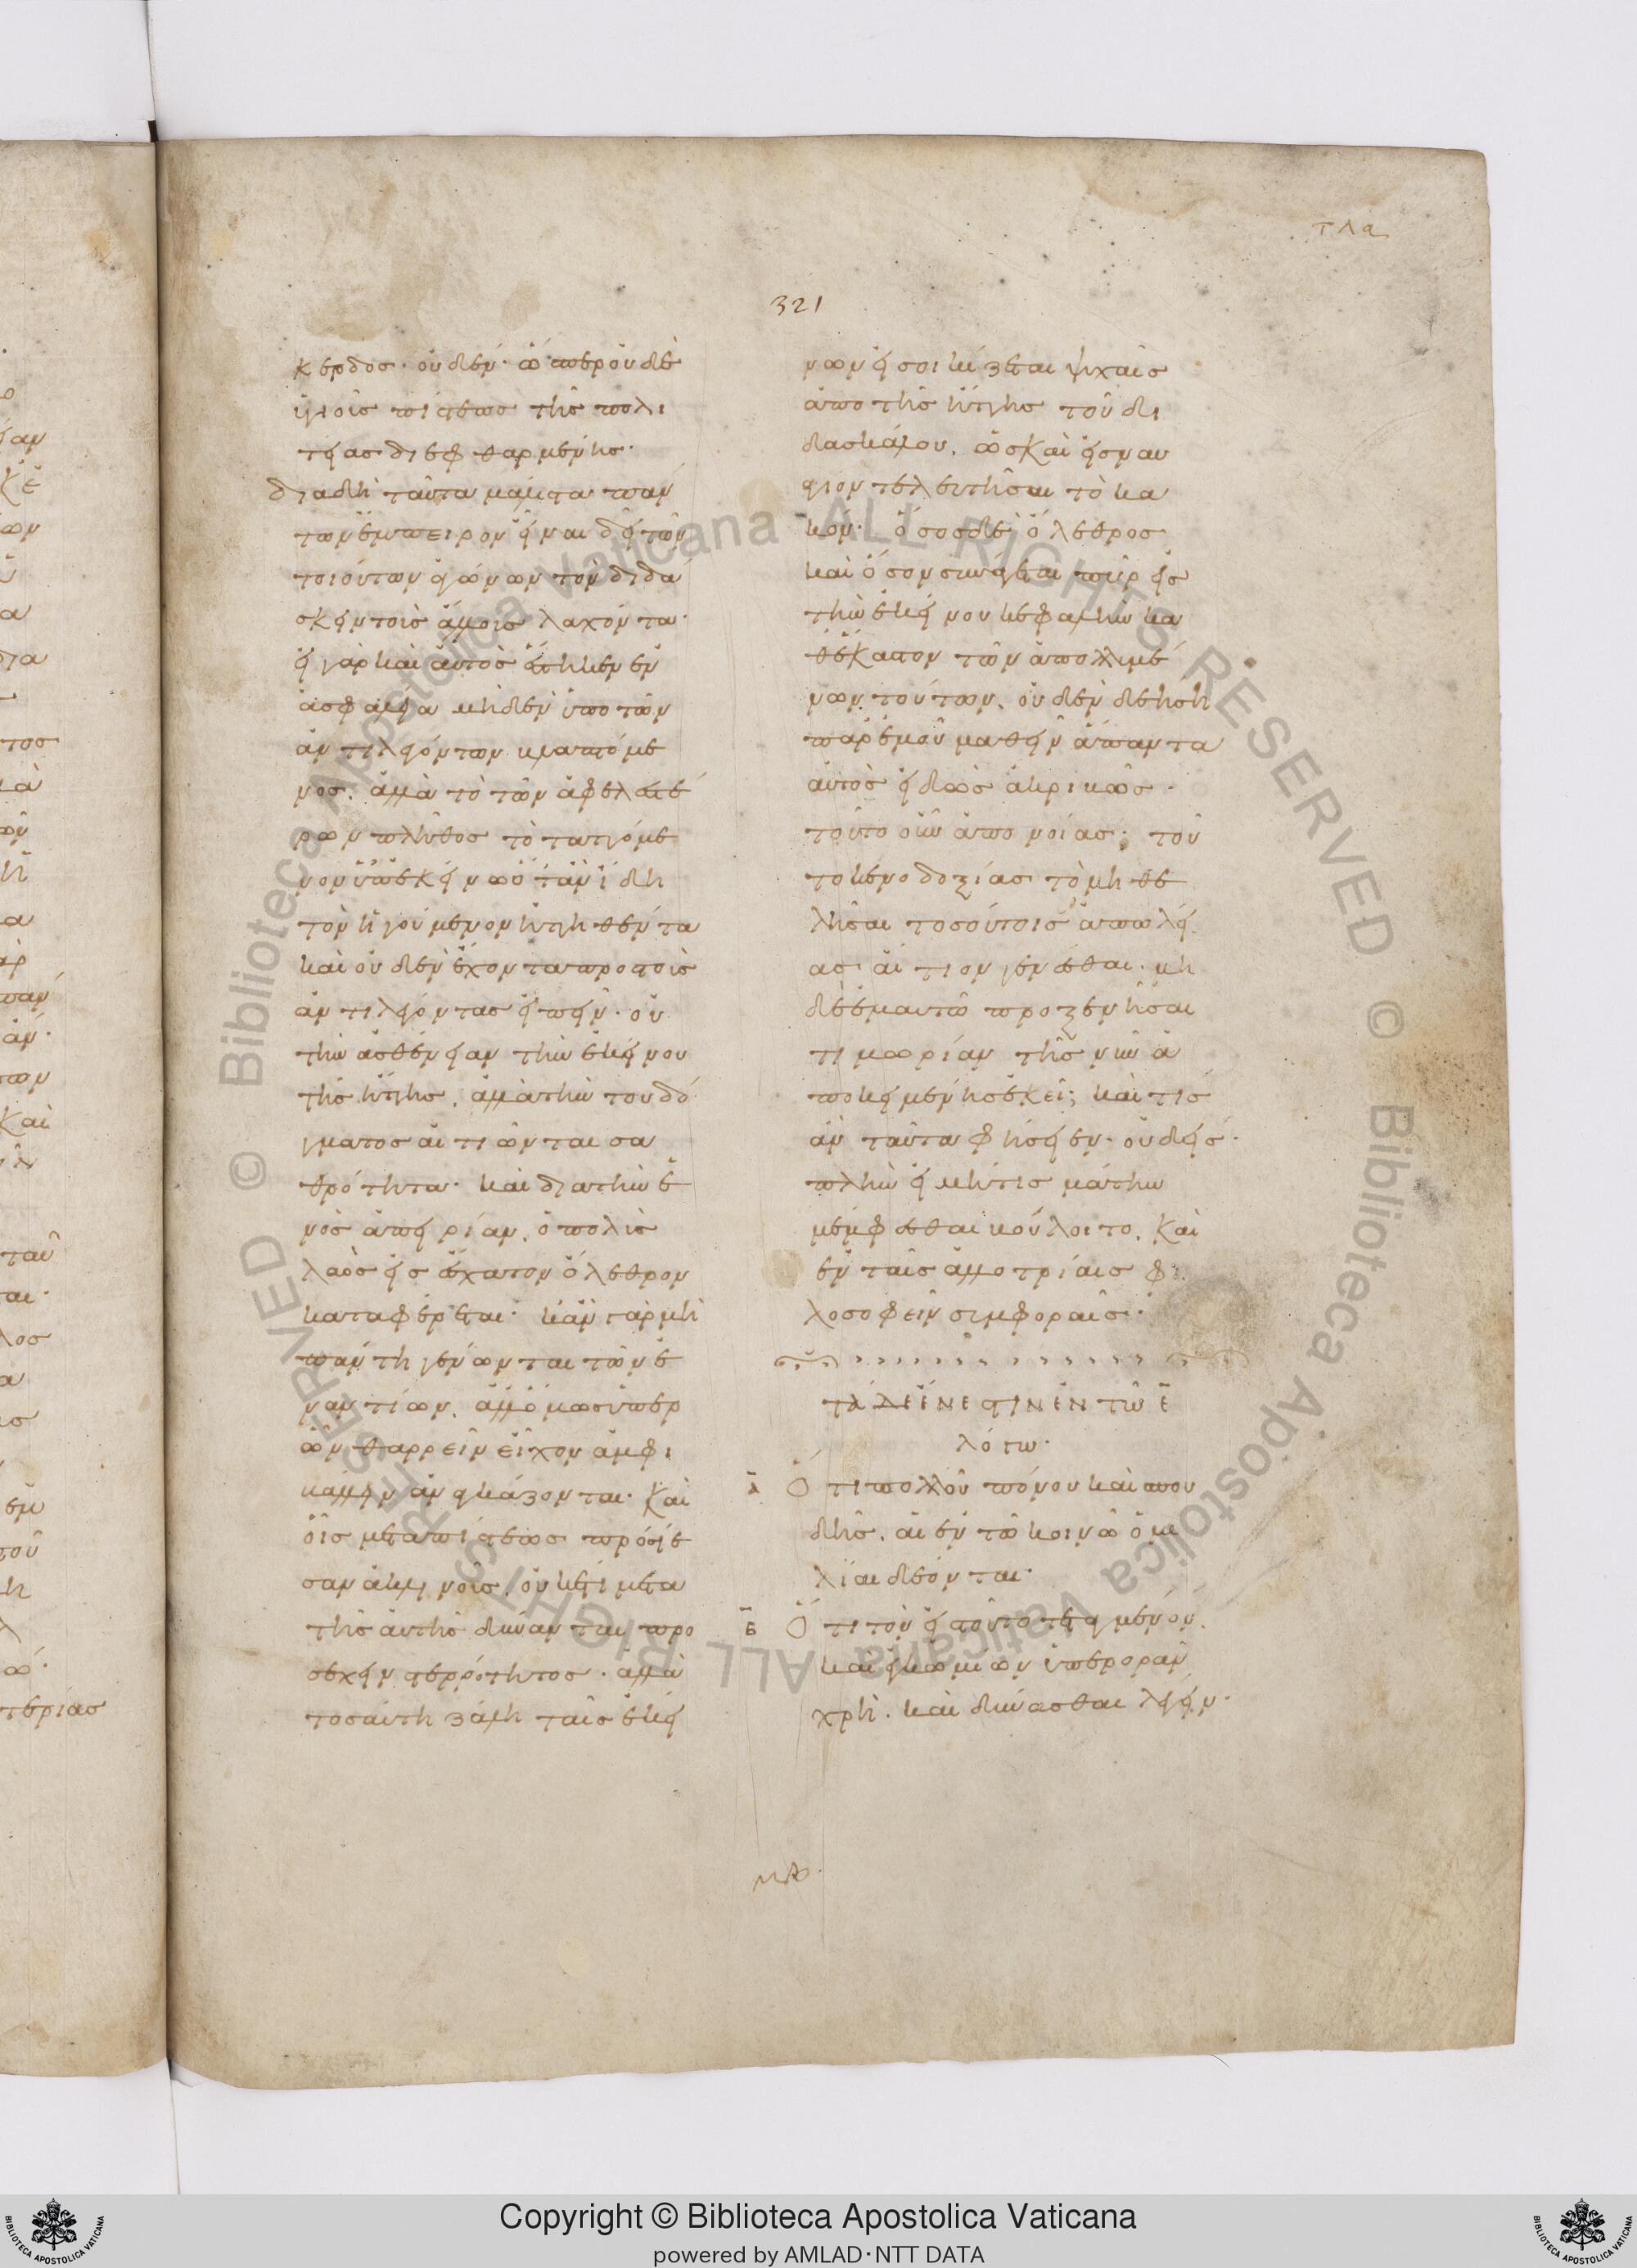 τλα
321
κέρδος· οὐδέν· ὥσπερ οὐδὲ
ὑγιοῦς πίστεως τῆς πολι
τείας διεφθαρμένης·
διὰ δὴ ταῦτα μάλιστα πάν
των ἔμπειρον εἶναι δεῖ τῶν
τοιούτων ἀγώνων τὸν διδά
σκειν τοὺς ἄλλους λαχόντα·
εἰ γὰρ καὶ αὐτὸς ἕστηκεν ἐν
ἀσφαλεία μηδὲν ὑπὸ τῶν
ἀντιλεγόντων βλαπτόμε
νος. ἀλλὰ τὸ τῶν ἀφελεστέ
ρων πλῆθος τὸ ταττόμε
νον ὑπ' ἐκείνω ὅταν ἴδη
τὸν ἡγούμενον ἡττηθέντα
καὶ οὐδὲν ἔχοντα πρὸς τοὺς
ἀντιλέγοντας εἰπεῖν· οὐ
τὴν ἀσθένειαν τὴν ἐκείνου
τῆς ἥττης. ἀλλὰ τὴν τοῦ δό
γματος αἰτιῶνται σα
θρότητα· καὶ διὰ τὴν ἑ
νὸς ἀπειρίαν. ὁ πολὺς
λαὸς εἰς ἔσχατον ὄλεθρον
καταφέρεται· κἂν γὰρ μὴ
πάντη γένωνται τῶν ἐ
ναντίων. ἀλλ' ὅμως ὑπὲρ
ὧν θαρρεῖν εἶχον ἀμφι
βάλλειν ἀναγκάζονται· καὶ
οἷς μετὰ πίστεως προσήε
σαν ἀκλινοῦς. οὐκέτι μετὰ
τῆς αὐτῆς δύνανται προ
σέχειν στερρότητος. ἀλλὰ
τοσαύτη ζάλη ταῖς ἐκεί
νων εἰσοικίζεται ψυχαῖς
ἀπὸ τῆς ἥττης τοῦ δι
δασκάλου. ὡς καὶ εἰς ναυ
άγιον τελευτῆσαι τὸ κα
κόν· ὅσος δὲ ὄλεθρος
καὶ ὅσον συνάγεται πῦρ εἰς
τὴν ἐκείνου κεφαλὴν κα
θ' ἕκαστον τῶν ἀπολλυμέ
νων τούτων. οὐδὲν δεήση
παρ' ἐμοῦ μαθεῖν ἅπαντα
αὐτὸς εἰδὼς ἀκριβῶς·
τοῦτο οὖν ἀπονοίας; τοῦ
το κενοδοξίας τὸ μὴ θε
λῆσαι τοσούτοις ἀπωλεί
ας αἴτιον γενέσθαι. μη
δὲ ἐμαυτῶ προξενῆσαι
τιμωρίαν τῆς νῦν ἀ
ποκειμένης ἐκεῖ; καὶ τίς
ἂν ταῦτα φήσειεν· οὐδείς·
πλὴν εἰ μήτις μάτην
μέμφεσθαι βούλοιτο. καὶ
ἐν ταῖς ἀλλοτρίαις φι
λοσοφεῖν συμφοραῖς·
τάδε ἔνεστιν ἐν τῶ ε
λόγω·
α Ὅτι πολλοῦ πόνου καὶ σπου
δῆς. αἱ ἐν τῶ κοινῶ ὁμι
λίαι δέονται·
β Ὅτι τὸν εἰς τοῦτο τεταγμένον.
καὶ ἐγκωμίων ὑπερορᾶν
χρὴ. καὶ δύνασθαι λέγειν·
Copyright © Biblioteca Apostolica Vaticana
powered by AMLAD·NTT DATA